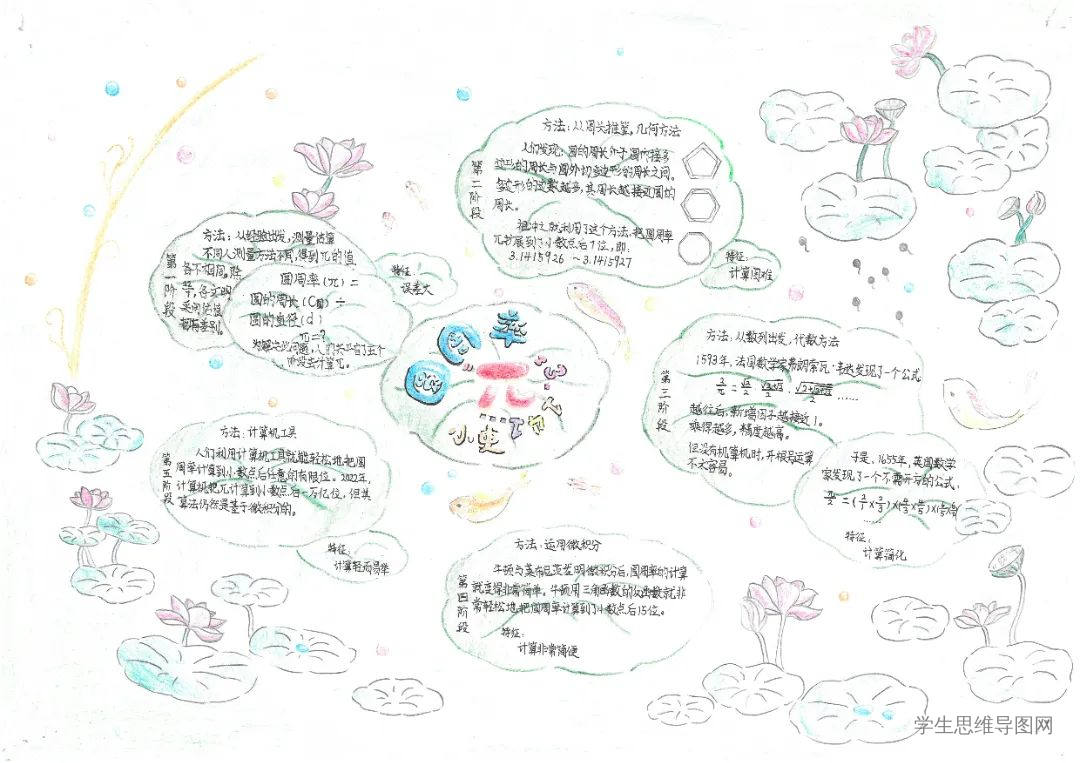 圆周率
π
第一阶段
方法：从经验出发，测量估算
不同人测量方法不同，得到π的值
各不相同。除
圆周率(π)=
圆的周长(C圆)÷
圆的直径(d)
π=?
为解决此问题，人们共经历了五个
阶段去计算π。
特征：
误差大
第二阶段
方法：从周长推望，几何方法
人们发现：圆的周长介于圆内接多
边形的周长与圆外切多边形的周长之间。
多边形的边数越多，其周长越接近圆的
周长。
祖冲之就利用了这个方法，把圆周率
π扩展到了小数点后7位，即：
3.1415926 ～3.1415927
特征：
计算困难
第三阶段
方法：从数列出发，代数方法
1593年，法国数学家弗朗索瓦·韦达发现了一个公式
越往后，新增因子越接近1。
乘得越多，精度越高。
但没有机算机时，开根号运算
不太容易。
于是，1655年，英国数学
家发现了一个不需开方的公式，
……
特征：
计算简化
第四阶段
方法：运用微积分
牛顿与莱布尼茨发明微积分后，圆周率的计算
就变得非常简单。牛顿用三角函数的反函数就非
常轻松地把圆周率计算到了小数点后15位。
特征：
计算非常简便
第五阶段
方法：计算机工具
人们利用计算机工具就能轻松地把圆
周率计算到小数点后任意的有限位。2022年，
计算机把π计算到小数点后一万亿位，但其
算法仍然是基于微积分的。
特征：
计算轻而易举
学生思维导图网